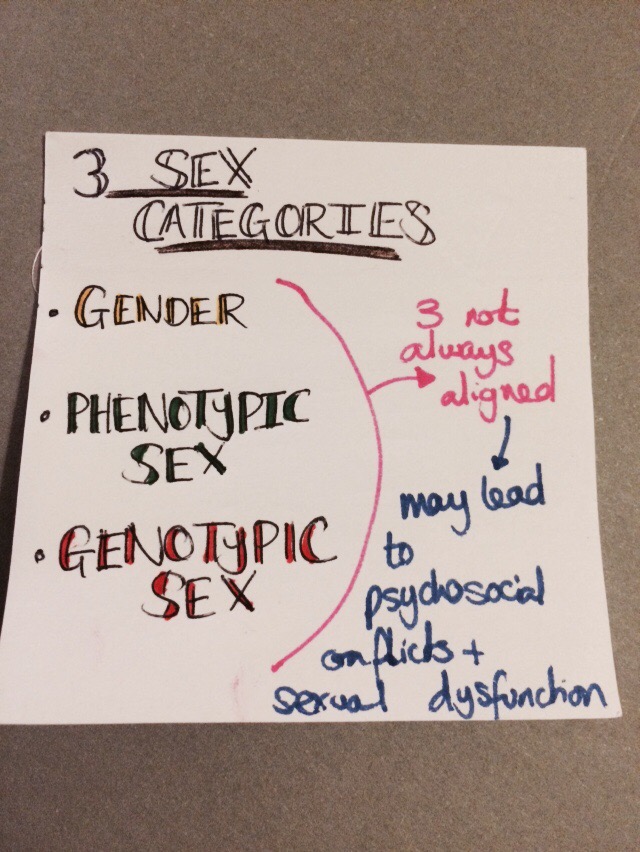 3 SEX
CATEGORIES
· GENDER
· PHENOTYPIC
SEX
· GENOTYPIC
SEX
3 not
always
aligned
may lead
to
psychosocial
conflicts +
sexual dysfunction